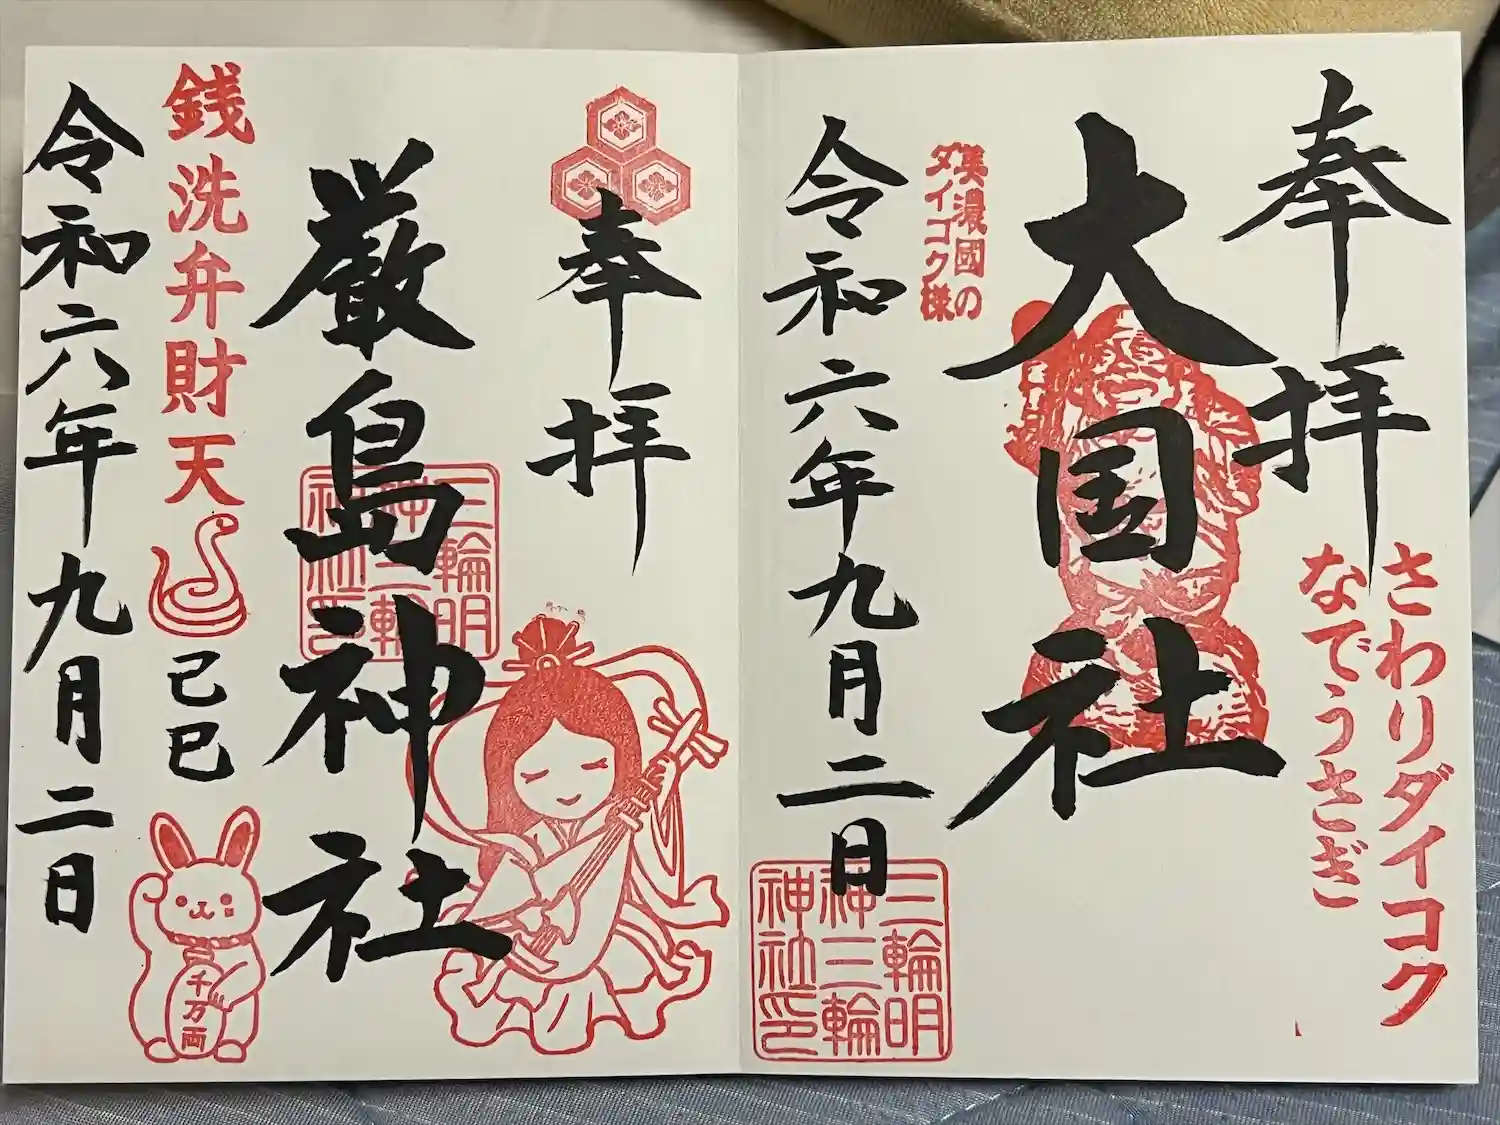 奉拝
さわりダイコク
なでうさぎ
大国社
美濃國の
ダイコク様
令和六年九月二日
三輪明
神三輪
神社印
奉拝
厳島神社
三輪明
神三輪
神社印
銭洗弁財天
己巳
千万両
令和六年九月二日